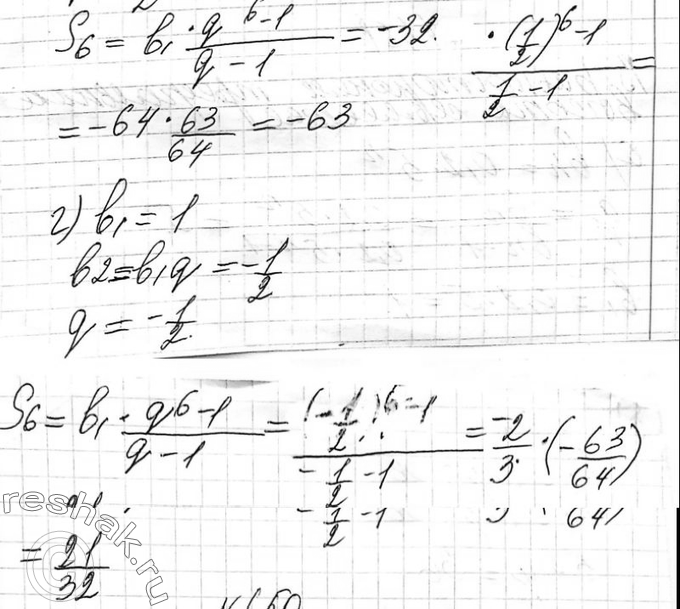 S₆ = b₁ · (q⁶-1)/(q-1) = -32 · ((1/2)⁶-1)/(1/2-1) =
= -64 · 63/64 = -63
г) b₁ = 1
b2 = b₁q = -1/2
q = -1/2
S₆ = b₁ · (q⁶-1)/(q-1) = ((-1/2)⁶-1)/(-1/2-1) = -2/3 · (-63/64)
-1/2 -1 3 64
= 21/32
Reshak.ru